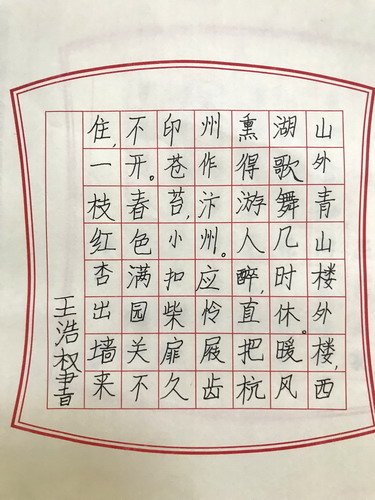 山外青山楼外楼,西
湖歌舞几时休。暖风
熏得游人醉,直把杭
州作汴州。应怜屐齿
印苍苔,小扣柴扉久
不开。春色满园关不
住,一枝红杏出墙来
王浩权書